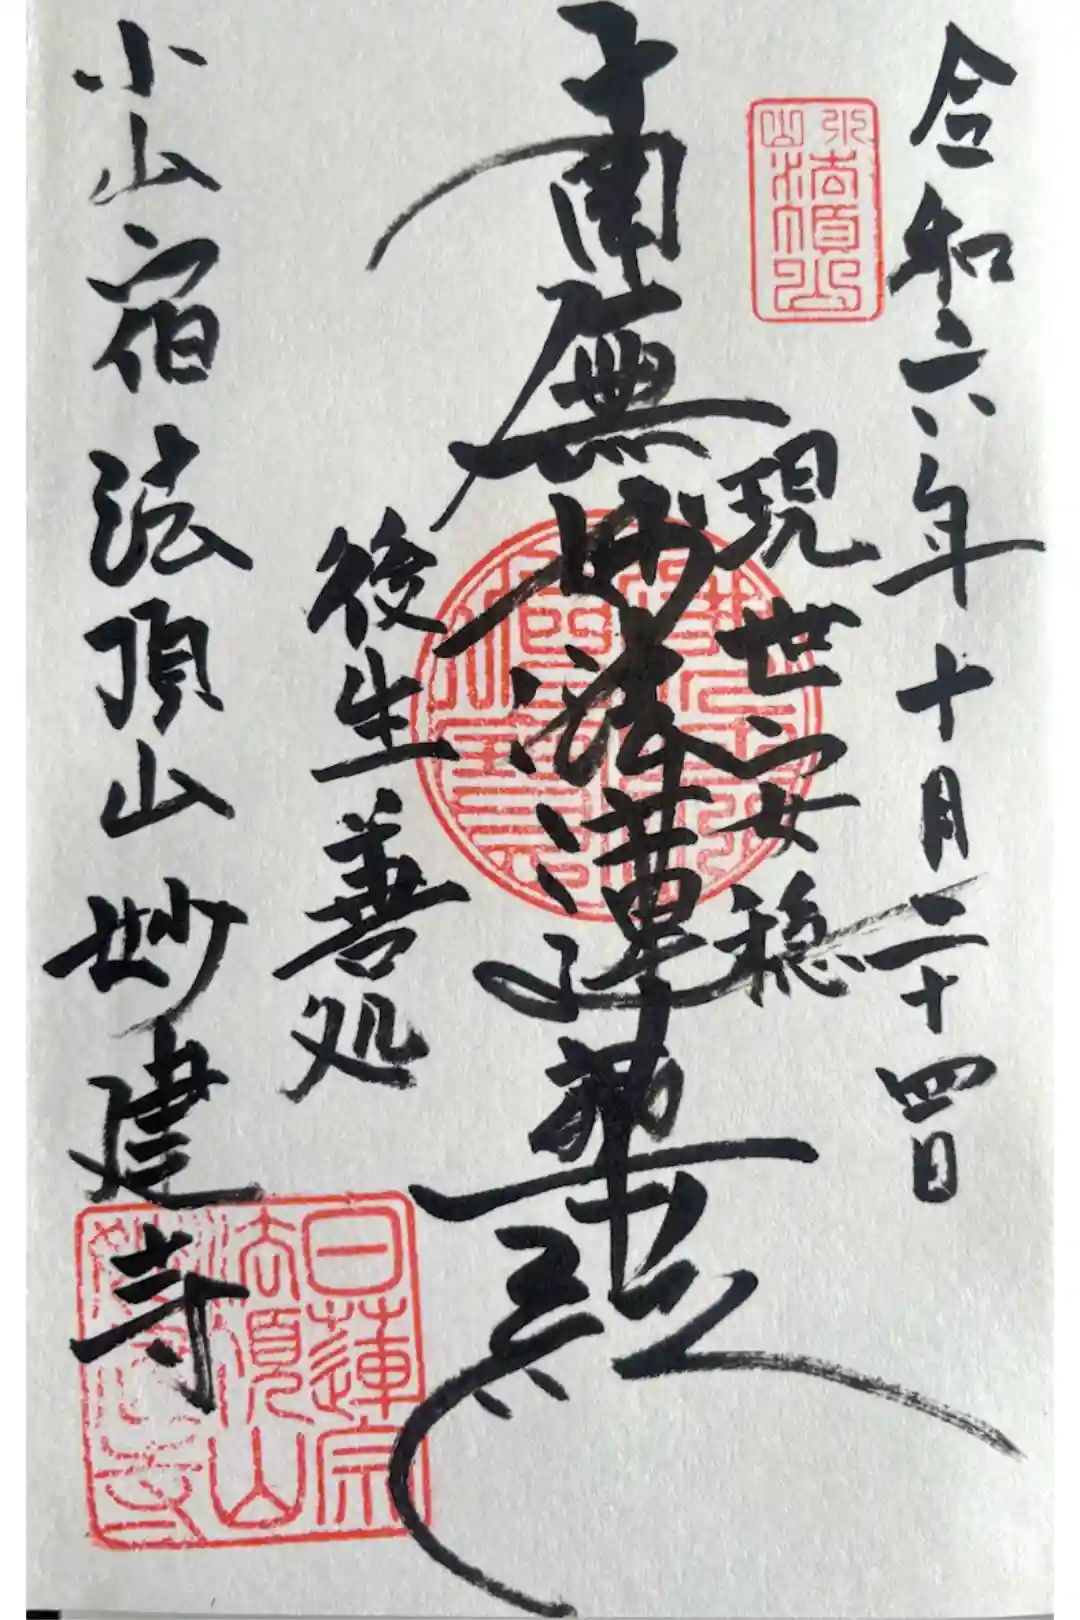 令和六年十月二十四日
現世安穏
南無妙法蓮華経
後生善処
小山宿法頂山妙建寺
小山
法頂山
日蓮宗
法頂山
妙建寺